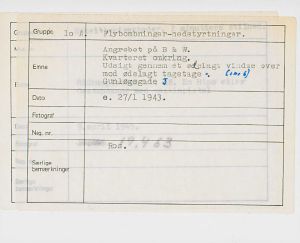 Gruppe 10 A. Flybombninger-nedstyrtninger.
Emne Angrebet på B & W.
Kvarteret omkring.
Udsigt gennem et ødelagt vindue over
mod ødelagt tagetage.
Gunløgsgade
Dato e. 27/1 1943.
Fotograf
Neg. nr.
Særlige bemærkninger Ros.